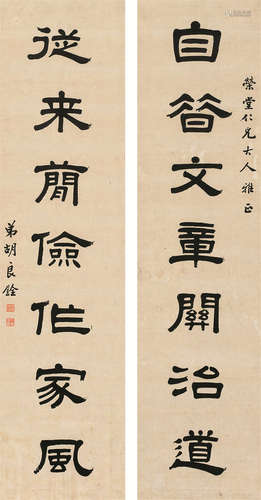 榮堂仁兄大人雅正
自昝文章關治道
従来蕳儉作家風
弟胡良銓